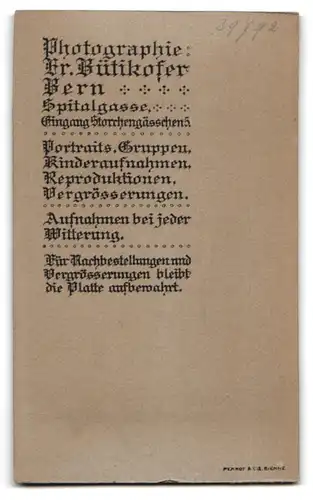 39/92
Photographie:
Fr. Bütikofer
Bern
Spitalgasse.
Eingang Storchengässchen 5.
Portraits. Gruppen.
Kinderaufnahmen.
Reproduktionen.
Vergrösserungen.
Aufnahmen bei jeder
Witterung.
Für Nachbestellungen und
Vergrösserungen bleibt
die Platte aufbewahrt.
PERROT & CIE. BIENNE